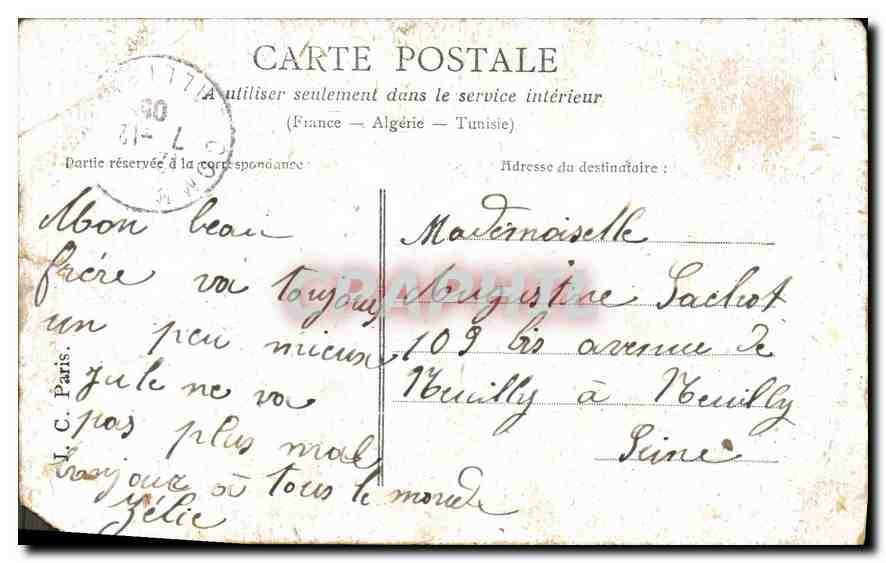 CARTE POSTALE
A utiliser seulement dans le service intérieur
(France — Algérie — Tunisie)
Partie réservée à la correspondance:
Adresse du destinataire :
Mon beau
frère va toujours
un peu mieux
Jule ne va
pas plus mal
bonjour à tous le monde
Zélie
Mademoiselle
Augustine Sachot
109 bis avenue de
Neuilly à Neuilly
Seine
J. C. Paris.
7 -12
05
GRAPHTL